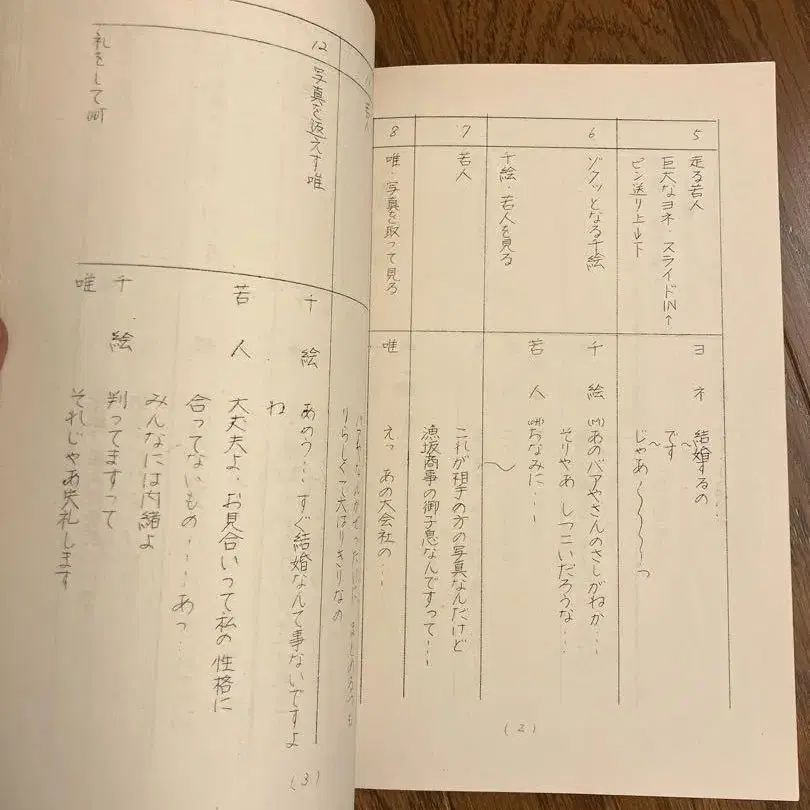 5
走る若人
巨大なヨネ・スライドIN↑
ピン送り上→下
ヨネ 結婚するの
です〜
じゃあ〜〜〜〜っ
6
ゾクッとなる千絵
千絵・若人を見る
千絵 (M)あのバアやさんのさしがねか…
そりゃあ しつこいだろうな…
若人 (off)ちなみに…
7
若人
これが相手の方の写真なんだけど
漁坂商事の御子息なんですって…
8
唯・写真を取って見る
唯 えっ あの大会社の…
(2)
若人
まとめるつも
りらしくて大はりきりなの
12
写真を返えす唯
礼をしてOUT
千絵 あのう…すぐ結婚なんて事ないですよ
ね
若人 大丈夫よ、お見合いって私の性格に
合ってないもの…あっ…
みんなには内緒よ
千絵 判ってますって
唯 それじゃあ失礼します
(3)